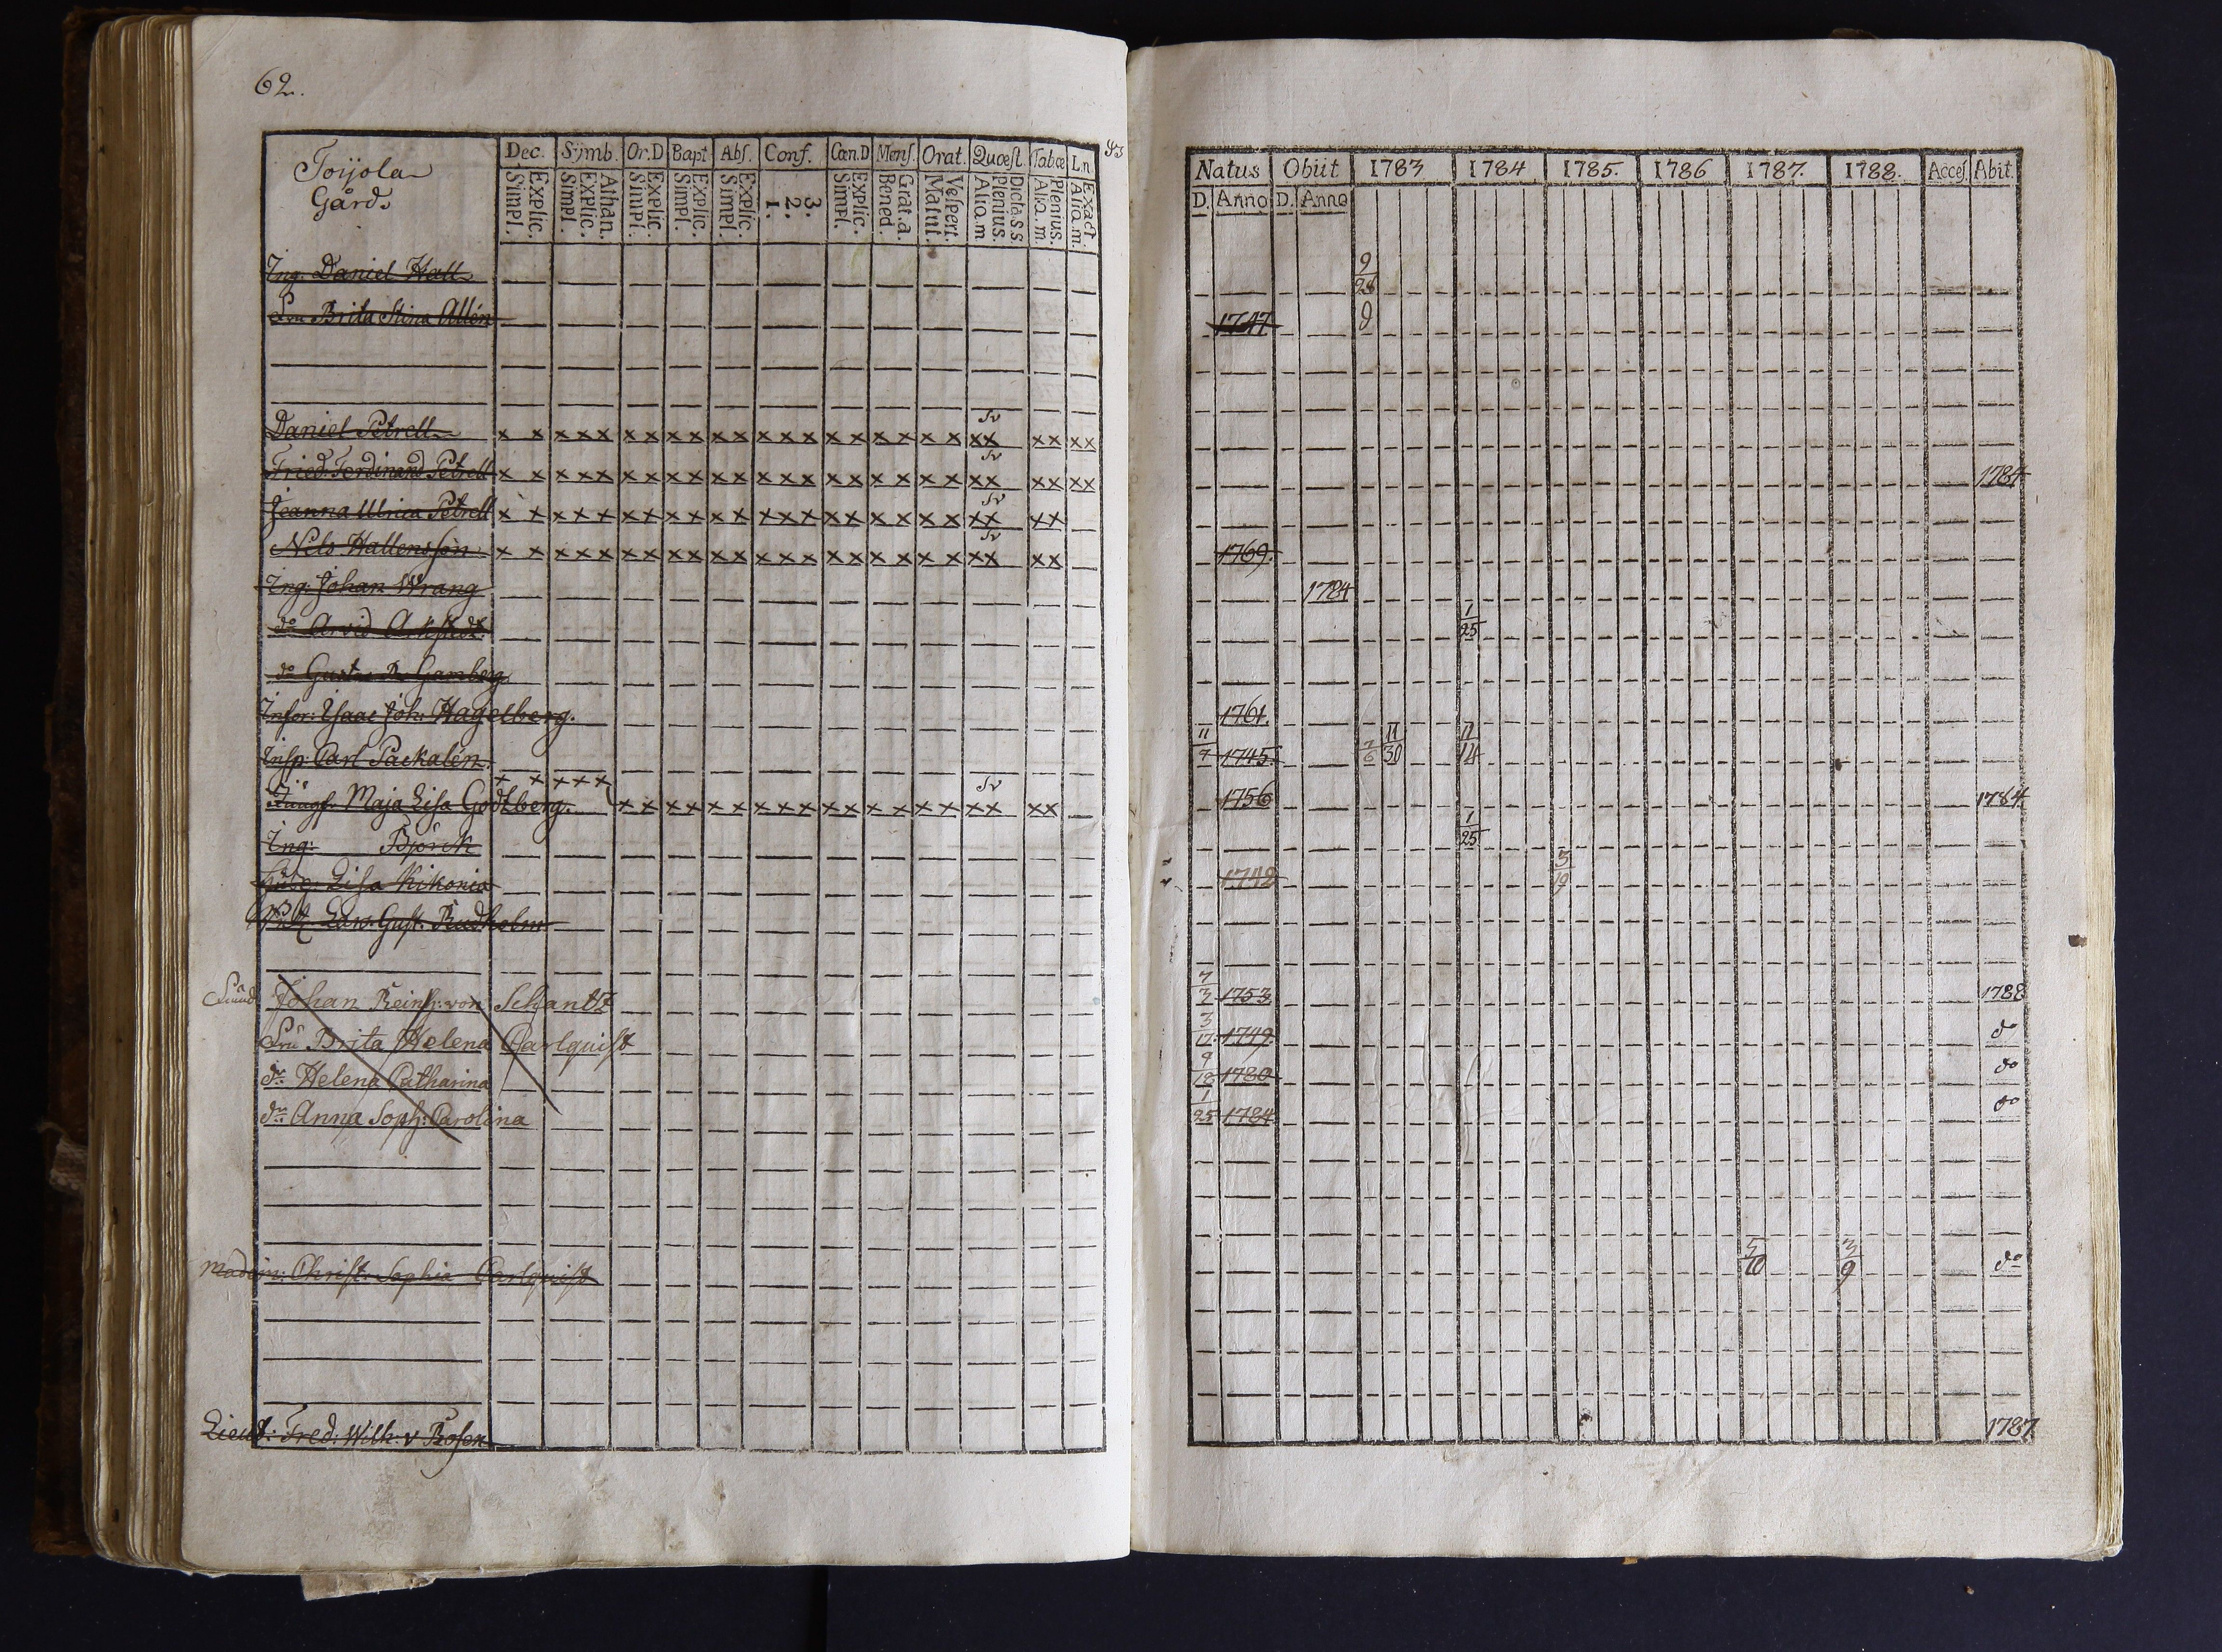 62.
Toijola
Gård
Dec. Symb. Or.D Bapt Abs. Conf. Cœn.D Mens. Orat. Quæst. Tabœ Ln.
Explic. Simpl. Athan. Explic. Simpl. Explic. Simpl. Explic. Simpl. Explic. Simpl. 3. 2. 1. Explic. Simpl. Grat.a. Bened. Vespert. Matut. Dicta.s.s Plenius. Aliq.m Plenius. Aliq.m. Exact. Aliq.m.
Natus Obiit 1783 1784 1785. 1786 1787. 1788. Acces. Abit.
D. Anno D. Anno
Ing. Daniel Hall 9/28
Fru Brita Stina Allén 1747
Daniel Petrell x x x x x x x x x x x x x x x x x x x x x Sv x x x x x x
Fried: Ferdinand Petrell x x x x x x x x x x x x x x x x x x x x x Sv x x x x x x 1784
Jeanna Ulrica Petrell x x x x x x x x x x x x x x x x x x x x x Sv x x x x
Nils Hallensson x x x x x x x x x x x x x x x x x x x x x Sv x x x x 1769.
Ing: Johan Wrang 1784
do Arvid 1/25
do Gust: Gamberg
Infor: Isaac Joh: Hagelberg. 1761.
Insp: Carl Packalén 11/7 1745. 7/6 11/30 11/14
Jungf. Maja Lisa Godtberg. x x x x x x x x x x x x x x x x x x x x x Sv x x x x 1756 1784
Ing: Björck 1/25
Lisa Kikonia 1742 5/19
Edw. Gust. Rudholm
Johan Reinh: von Schantz 7/3 1753 1788
Fru Brita Helena Carlquist 3/17 1749. do
dr Helena Catharina 9/18 1780 do
dr Anna Soph: Carolina 1/25 1784 do
Madam: Christ. Sophia Carlquist 5/10 3/9 do
Lieut: Fred: Wilh: v Rosen 1787